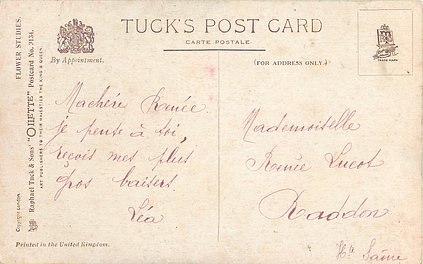 TUCK'S POST CARD
CARTE POSTALE
By Appointment.
(FOR ADDRESS ONLY.)
TRADE MARK
FLOWER STUDIES.
Raphael Tuck & Sons' "OILETTE" Postcard No. 3134.
ART PUBLISHERS TO THEIR MAJESTIES THE KING & QUEEN.
Copyright LONDON
Ma chérie Renée
je pense à toi,
reçois mes plus
gros baisers
Léa
Printed in the United Kingdom.
Mademoiselle
Renée Lucot
Raddon
Hte Saône